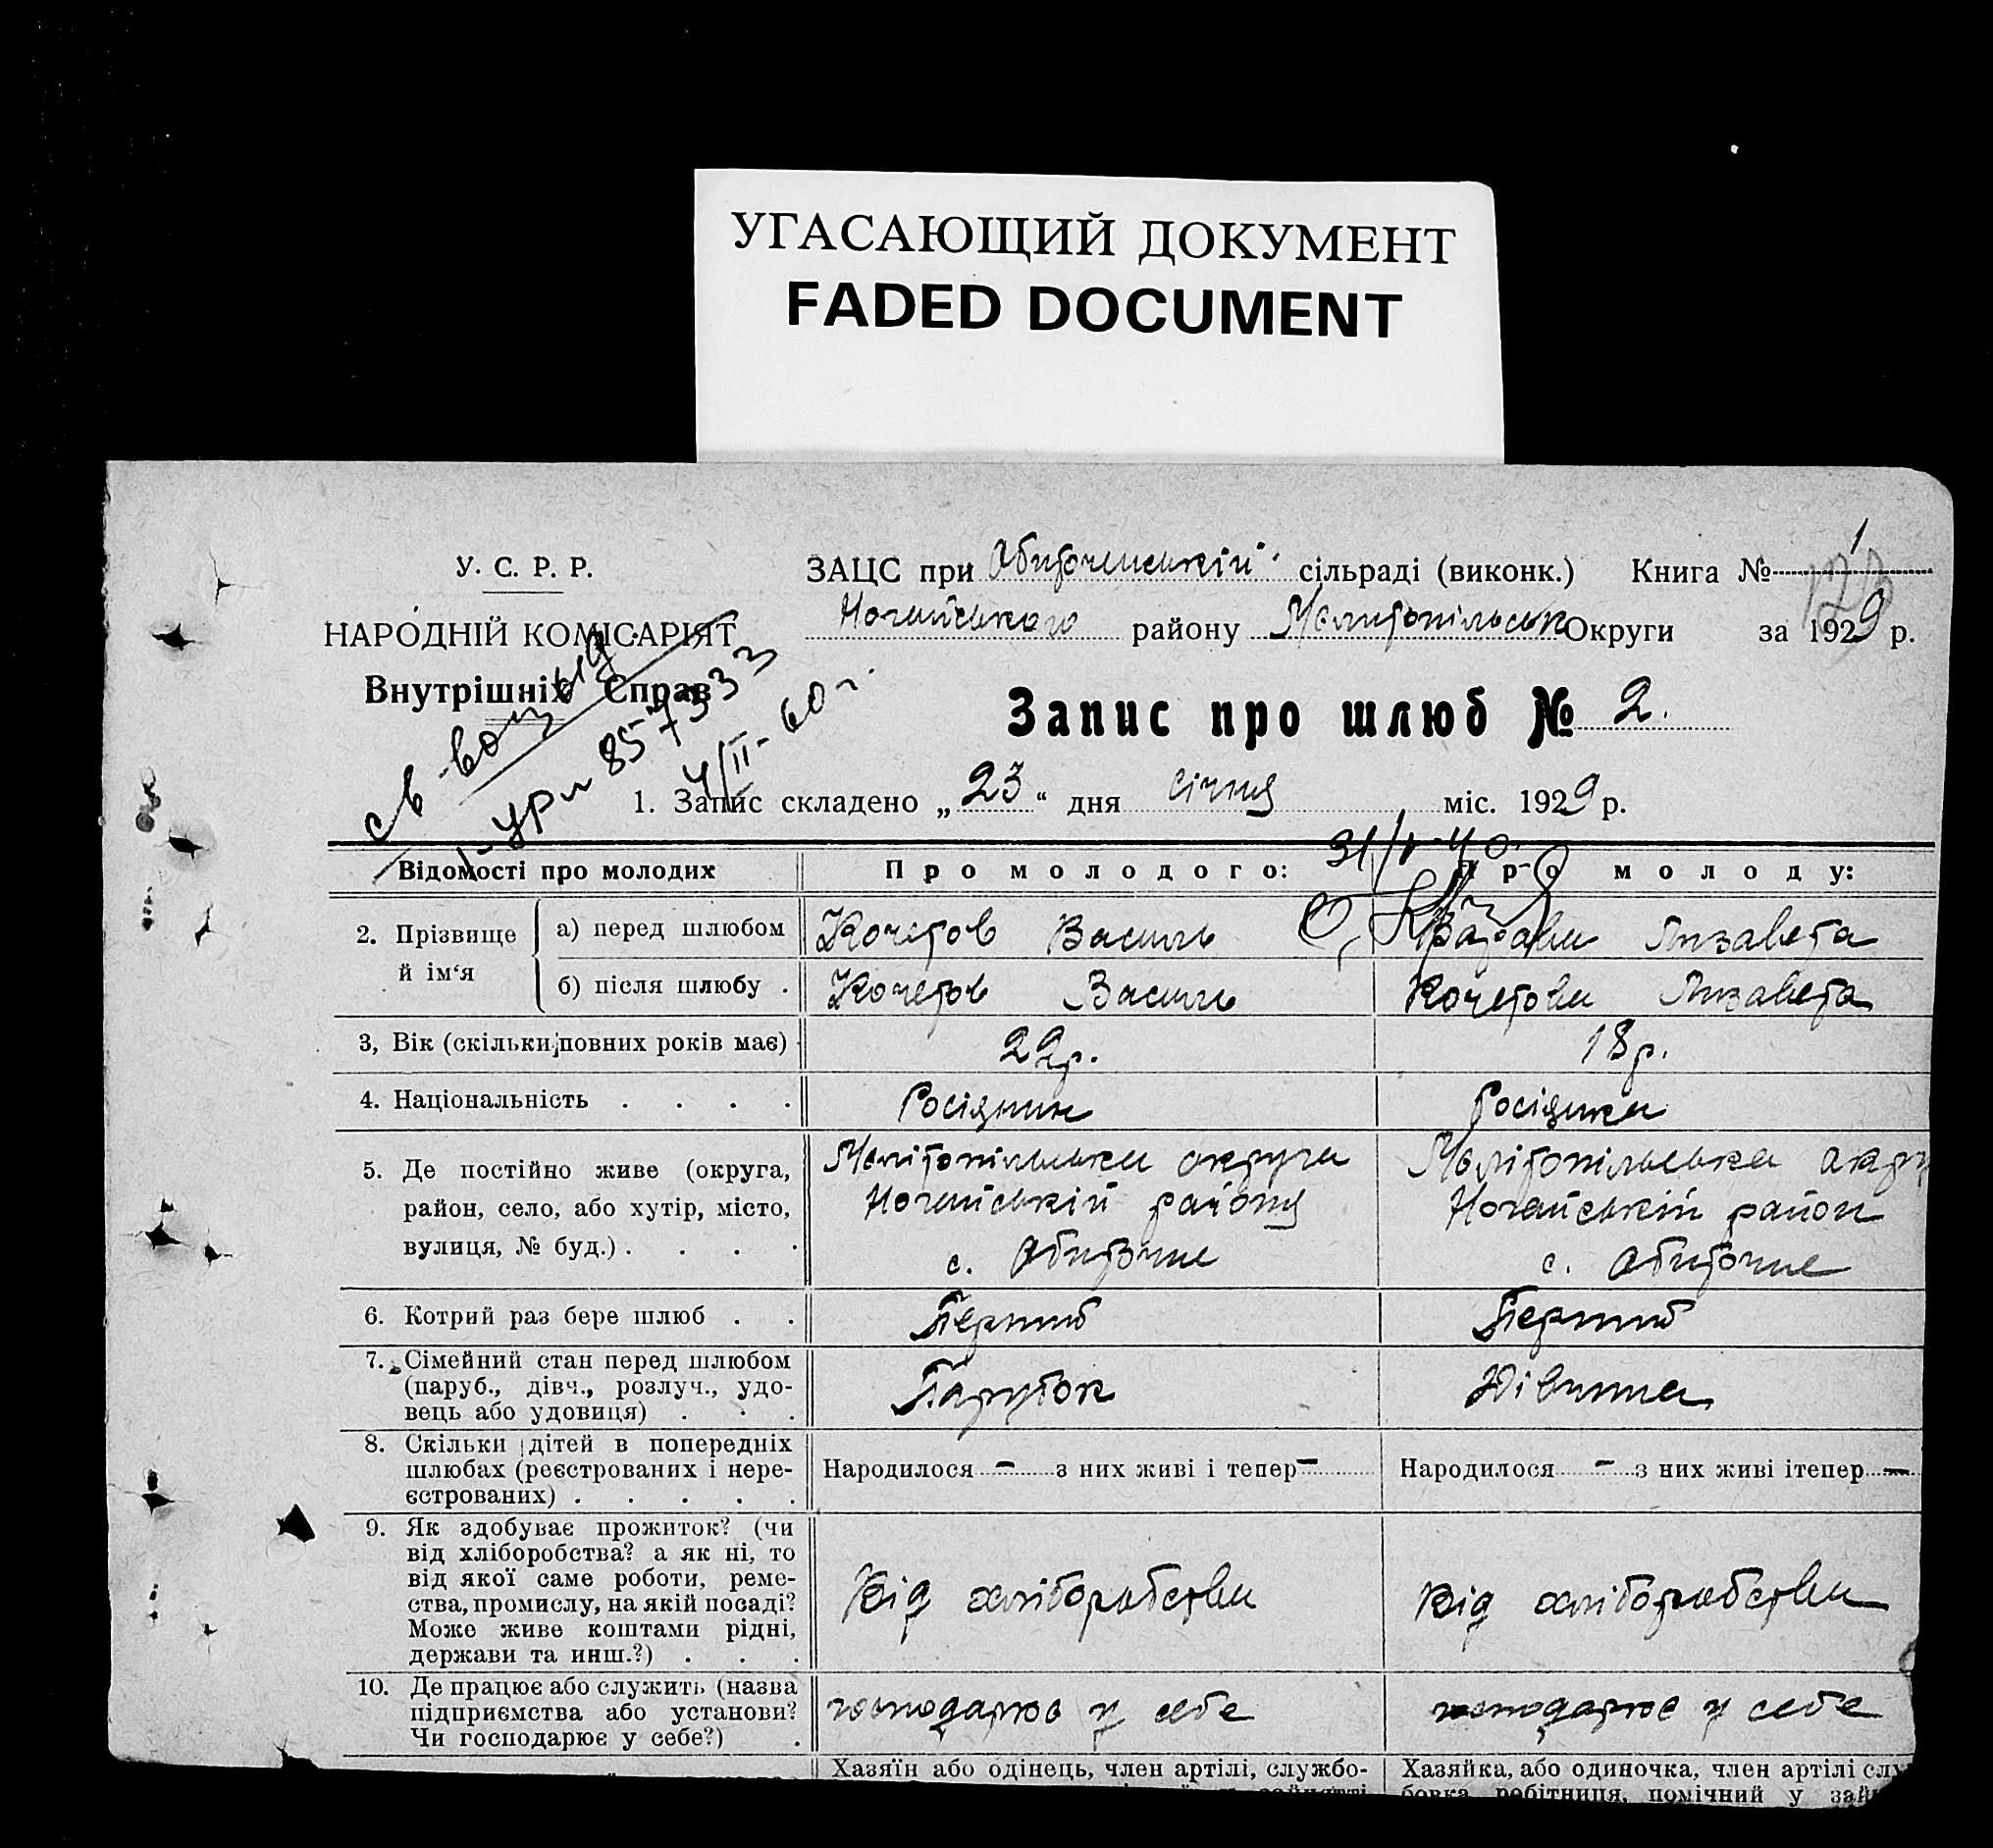 УГАСАЮЩИЙ ДОКУМЕНТ
FADED DOCUMENT
У. С. Р. Р.
НАРОДНІЙ КОМІСАРІЯТ
Внутрішніх Справ
ЗАЦС при Обиточенській сільраді (виконк.) Книга № 1
Ногайського району Мелитопільськ Округи за 1929 р.
Запис про шлюб № 2.
св
857333
4/II-60 г.
1. Запис складено „23“ дня січня міс. 1929 р.
Відомості про молодих
Про молодого:
Про молоду:
2. Прізвище й ім‘я
а) перед шлюбом
Кочетов Василь
Лизавета
б) після шлюбу .
Кочетов Василь
Кочетова Лизавета
3, Вік (скільки повних років має)
22р.
18р.
4. Національність . . . .
Росіянин
Росіянка
5. Де постійно живе (округа,
район, село, або хутір, місто,
вулиця, № буд.) . . . .
Мелітопільська округа
Ногайській района
с. Обиточне
Мелітопільська окру
Ногайській район
с. Обиточне
6. Котрий раз бере шлюб . .
Перший
Перший
7. Сімейний стан перед шлюбом
(паруб., дівч., розлуч., удо-
вець або удовиця) . . .
Парубок
Дівчина
8. Скільки дітей в попередніх
шлюбах (реєстрованих і нере-
єстрованих) . . . . .
Народилося - з них живі і тепер -
Народилося - з них живі ітепер -
9. Як здобуває прожиток? (чи
від хліборобства? а як ні, то
від якої саме роботи, реме-
ства, промислу, на якій посаді?
Може живе коштами рідні,
держави та инш.?) . . .
Від хліборобства
Від хліборобства
10. Де працює або служить (назва
підприємства або установи?
Чи господарює у себе?) .
господарює у себе
господарює у себе
Хазяїн або одінець, член артілі, службо-
Хазяйка, або одиночка, член артілі слу
бовка робітниця, помічний у зай